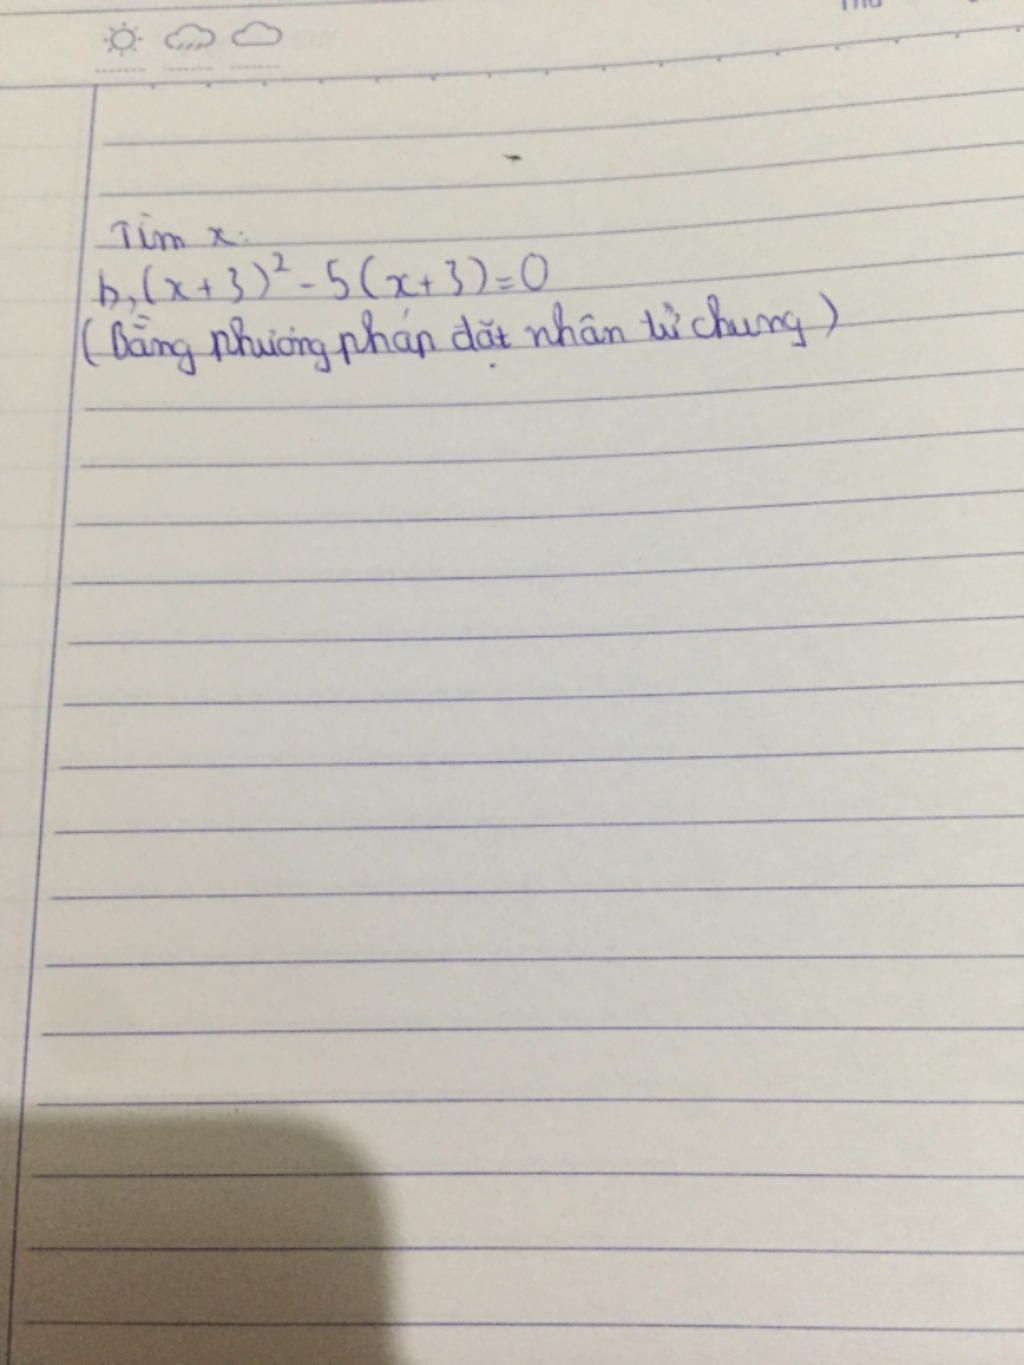 Tìm x:
b, (x+3)² - 5(x+3)=0
(Bằng phương pháp đặt nhân tử chung)